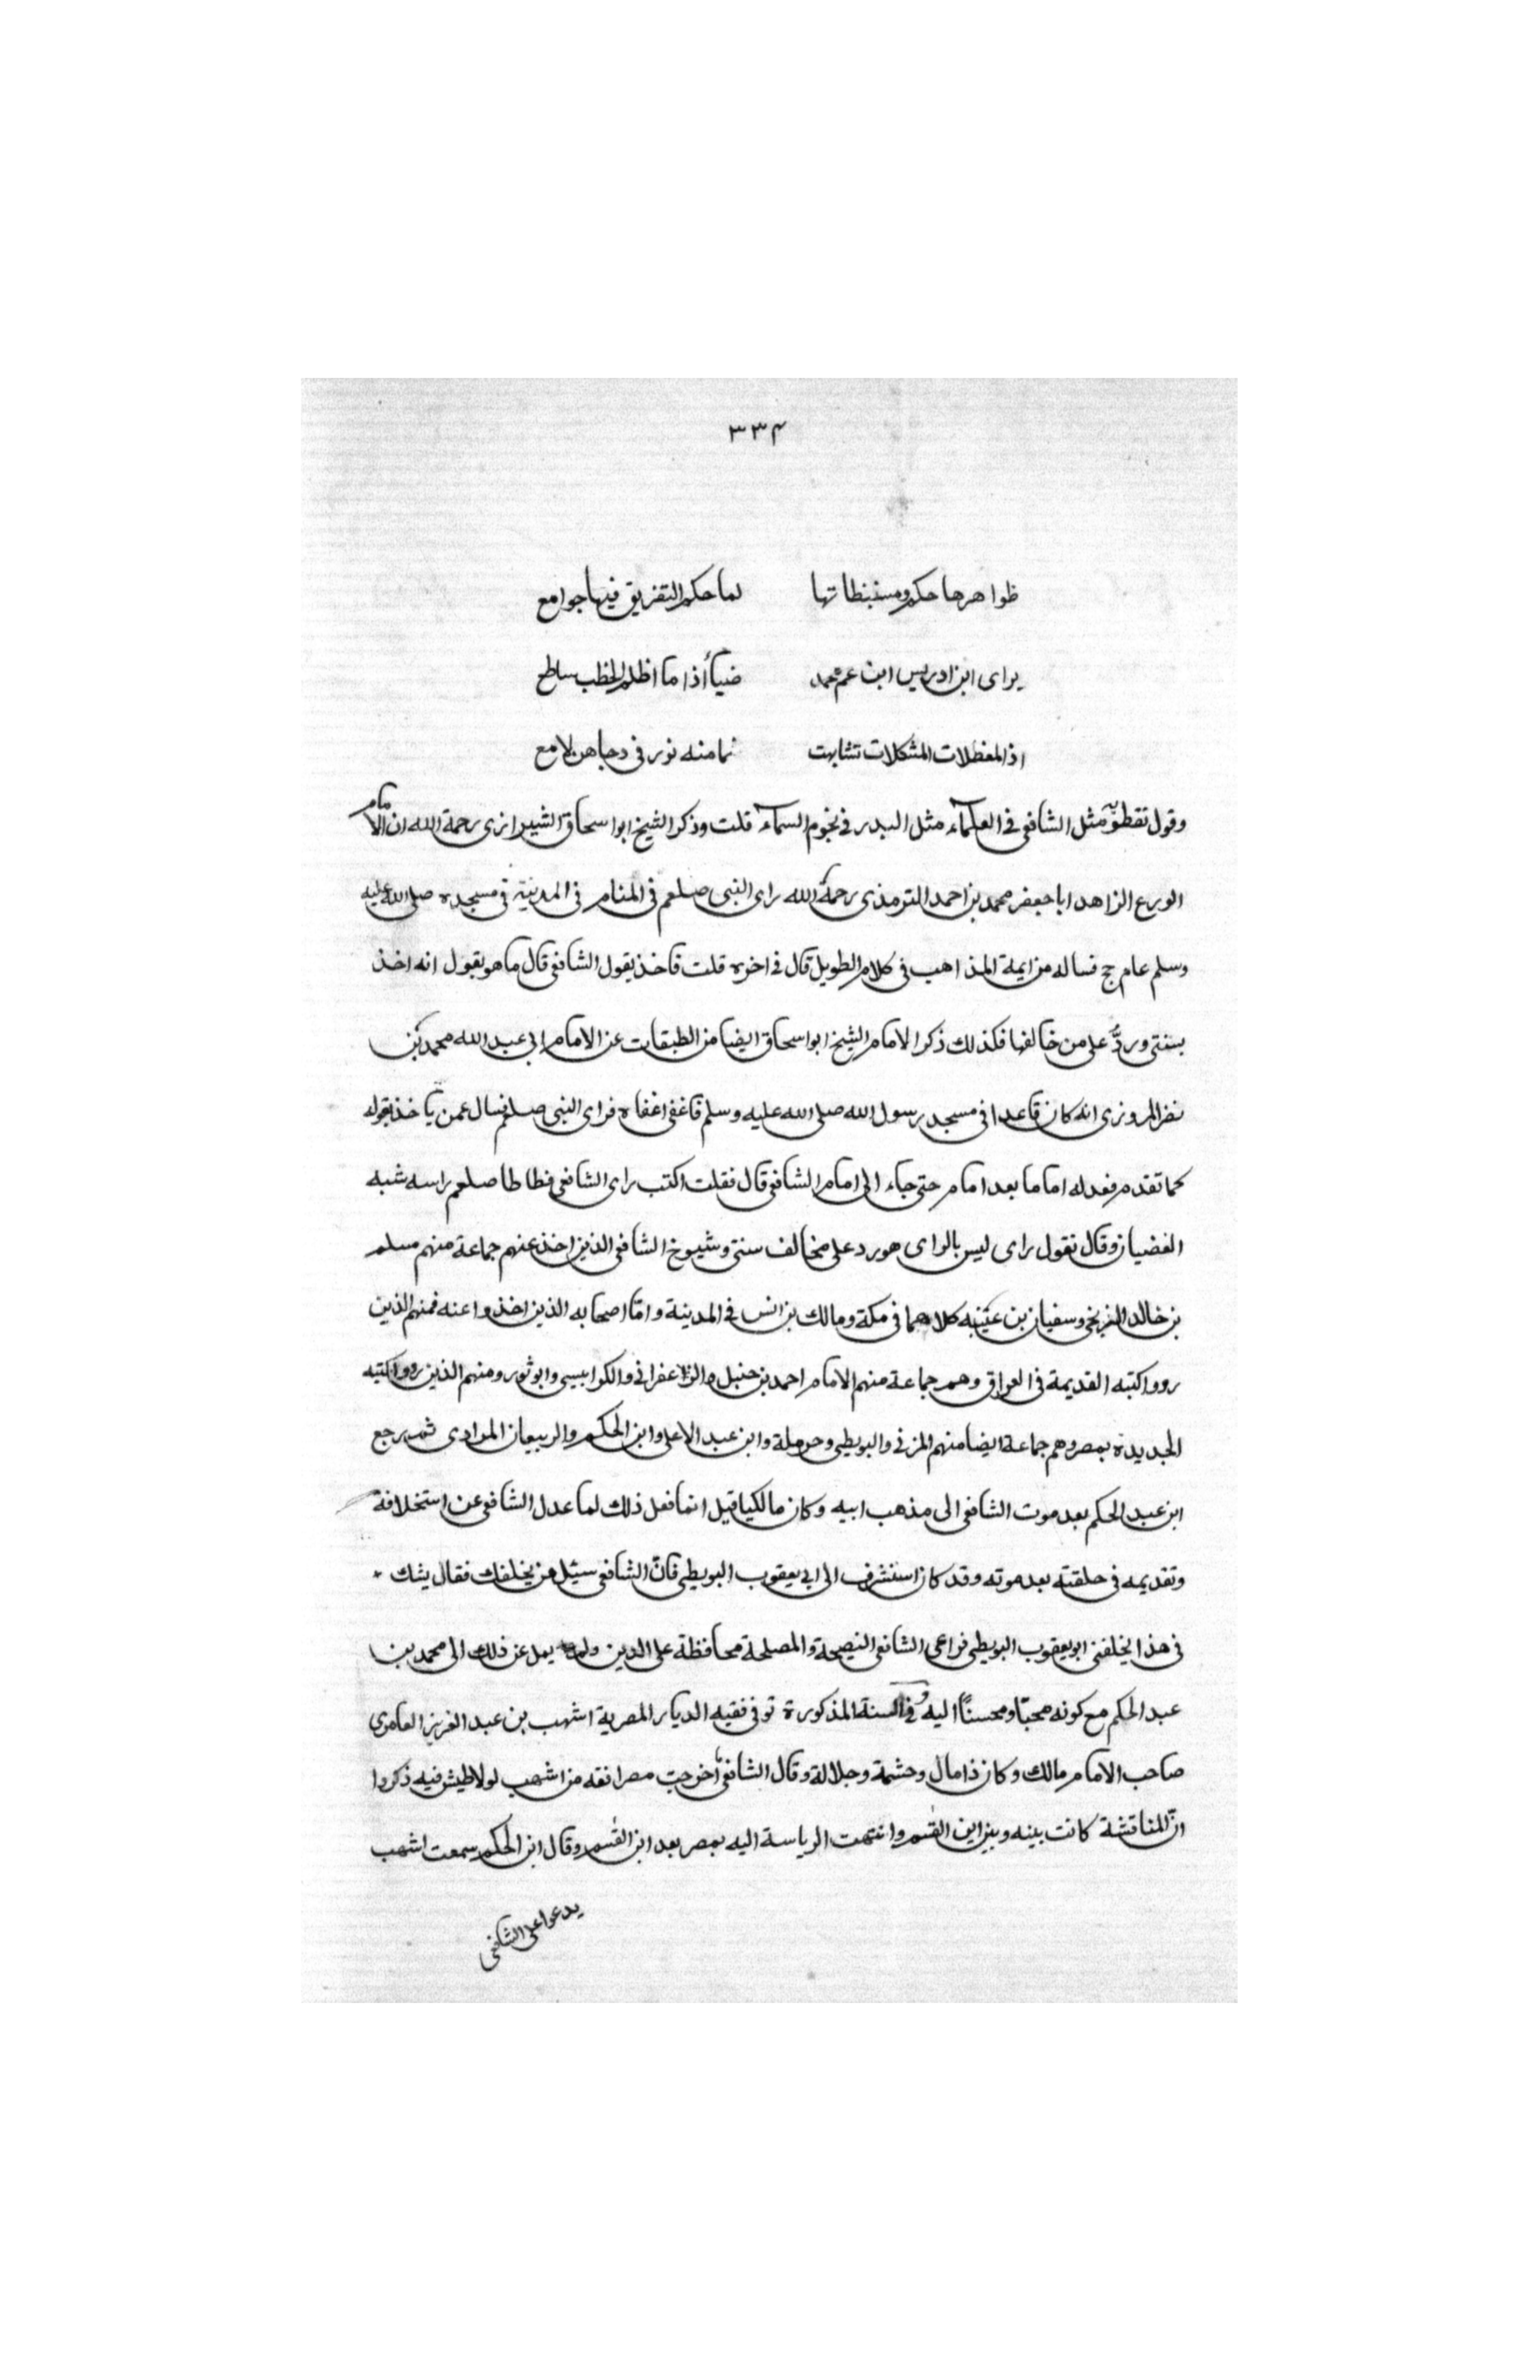 ٣٣٤
ظواهرها حكم ومستنبطاتها لما حكم التفريق فيها جوامع
يراى ابن ادريس ابن عم محمد ضياأذا ما اظلم الخطب ساطع
اذ المعظلات المشكلات تشابهت نما منه نور فى دجاهن لامع
وقول نفطويه مثل الشافعى فى العلماء مثل البدر فى نجوم السماء قلت وذكر الشيخ ابو اسحاق الشيرازى رحمة الله ان الامام
الورع الزاهد ابا جعفر محمد بن احمد الترمذى رحمة الله راى النبى صلعم فى المنام فى المدينة فى مسجده صلى الله عليه
وسلم عام حج فساله من ايمة المذاهب فى كلام الطويل قال فى اخره قلت فاخذ بقول الشافعى قال ما هو بقول انه اخذ
بسنتى وردُّ على من خالفها فكذلك ذكر الامام الشيخ ابو اسحاق ايضا من الطبقات عن الامام ابى عبد الله محمد بن
نضر المروزى انه كان قاعدا فى مسجد رسول الله صلى الله عليه وسلم فاغفى اغفاه فراى النبى صلعم فسال عمن ياخذ بقوله
كما تقدم فعد له اماما بعد امام حتى جاء الى امام الشافعى قال فقلت اكتب راى الشافعى فطاطا صلعم راسه شبه
الغضبان وقال تقول راى ليس بالراى هو رد على مخالف سنتى وشيوخ الشافعى الذين اخذ عنهم جماعة منهم مسلم
بن خالد الزنجى وسفيان بن عيينه كلاهما فى مكة ومالك بن انس فى المدينة وامّا اصحابه الذين اخذوا عنه فمنهم الذين
رووا كتبه القديمة فى العراق وهم جماعة منهم الامام احمد بن حنبل والزعفرانى والكرابيسى وابو ثور ومنهم الذين رووا كتبه
الجديدة بمصر وهم جماعة ايضا منهم المزنى والبويطى وحرملة وابن عبد الاعلى وابن الحكم والربيعان المرادى ثم رجع
ابن عبد الحكم بعد موت الشافعى الى مذهب ابيه وكان مالكيا قيل انما فعل ذلك لما عدل الشافعى عن استخلافة
وتقديمه فى حلقته بعد موته وقد كان استشرف الى ابى يعقوب البويطى فانّ الشافعى سئل من يخلفك فقال يشك
فى هذا يخلفنى ابو يعقوب البويطى فراعى الشافعى النصيحة والمصلحة محافظة على الدين ولم يمل عن ذلك الى محمد بن
عبد الحكم مع كونه محبّا ومحسنًا اليه وفى السنة المذكورة توفى فقيه الديار المصرية اشهب بن عبد العزيز العامرى
صاحب الامام مالك وكان ذا مال وحشمة وجلالة وقال الشافعى ما اخرجت مصر افقه من اشهب لولا طيش فيه ذكروا
انّ المناقشة كانت بينه وبين ابن القسم وانتهت الرياسة اليه بمصر بعد ابن القسم وقال ابن الحكم سمعت اشهب
يدعوا على الشافعى